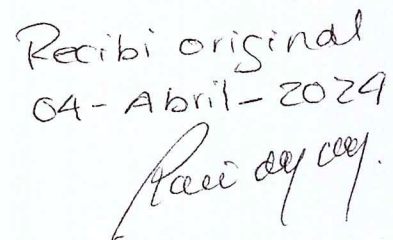 Recibi original
04-Abril-2024